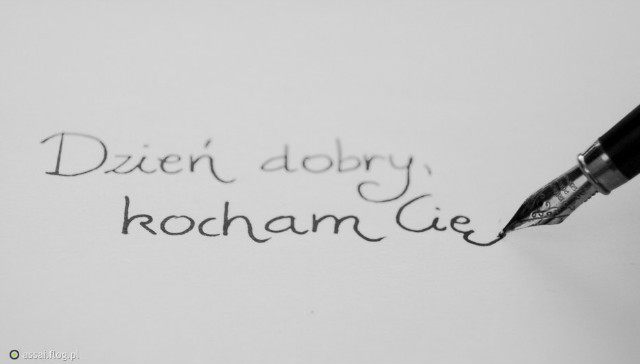 Dzień dobry,
kocham Cię
assai.flog.pl